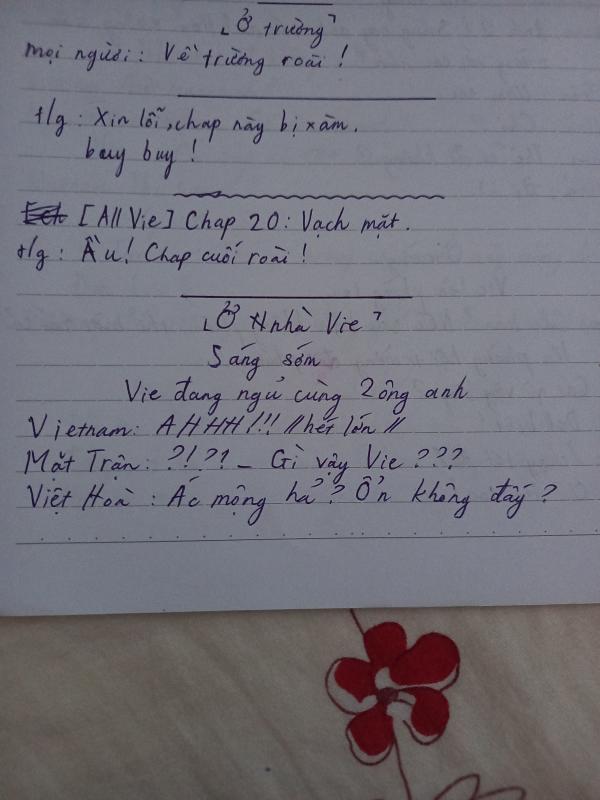 ⌞Ở trường⌝
mọi người: Về trường roài!
t/g: Xin lỗi, chap này bị xàm.
bay bay!
[All Vie] Chap 20: Vạch mặt.
t/g: Ầu! Chap cuối roài!
⌞Ở nhà Vie⌝
Sáng sớm
Vie đang ngủ cùng 2 ông anh
Vietnam: AHHH!!! //hét lớn//
Mặt Trận: ?!?! _ Gì vậy Vie???
Việt Hoà: Ác mộng hả? Ổn không đấy?